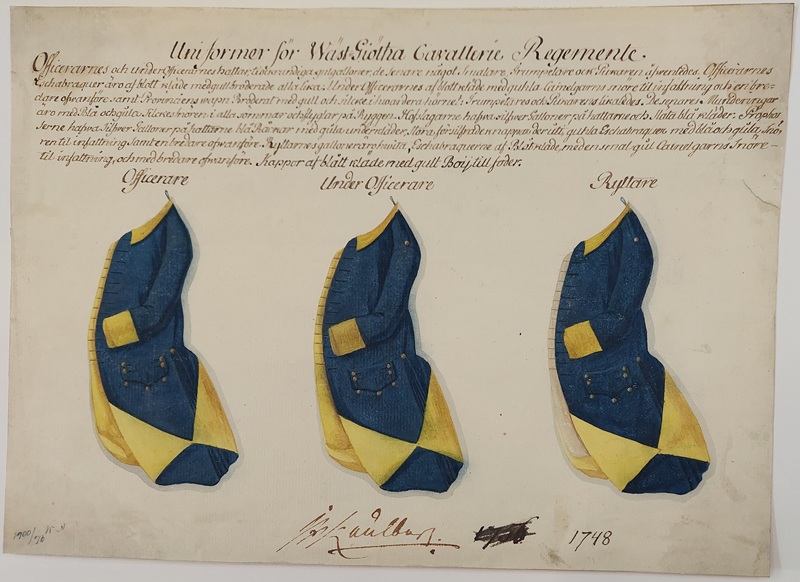 Uniformer för Wäst Giötha Cavallerie Regemente.
Officerarnes och under Officerarnes hattar, de senare något smalare, Trumpetare och Pukaren äfwenledes. Officerarnes
Eschabraquer äro af blått kläde med gull broderade alla lika. Under Officerarnes af blått kläde med guhla Camelgarns snöre til infattning och en bre-
dare ofwanföre samt Provinciens wapn Broderat med gull och Silcke i hwardera hörnet. Trumpetares och Pukarens lika ledes. De senares Munderingar
äro med Blå och gula Silckes snören i alla sömmar och flyglar på Ryggen. Hofslagarne hafwa silfwer Galloner på hattarne och Släta blå kläder.
hafwa Silfwer Galloner på hattarne blå Råckar med gula underkläder. guhla Eschabraquer med blå och gula Snö-
ren til infattning samt en bredare ofwanföre. Ryttarnes galloner äro hwita, Eschabraquerne af Blått kläde med en smal gul Camelgarns Snöre
til infattning, och med bredare ofwanföre. Kappor af blått kläde med gull Boij till foder.
Officerare Under Officerare Ryttare
1748